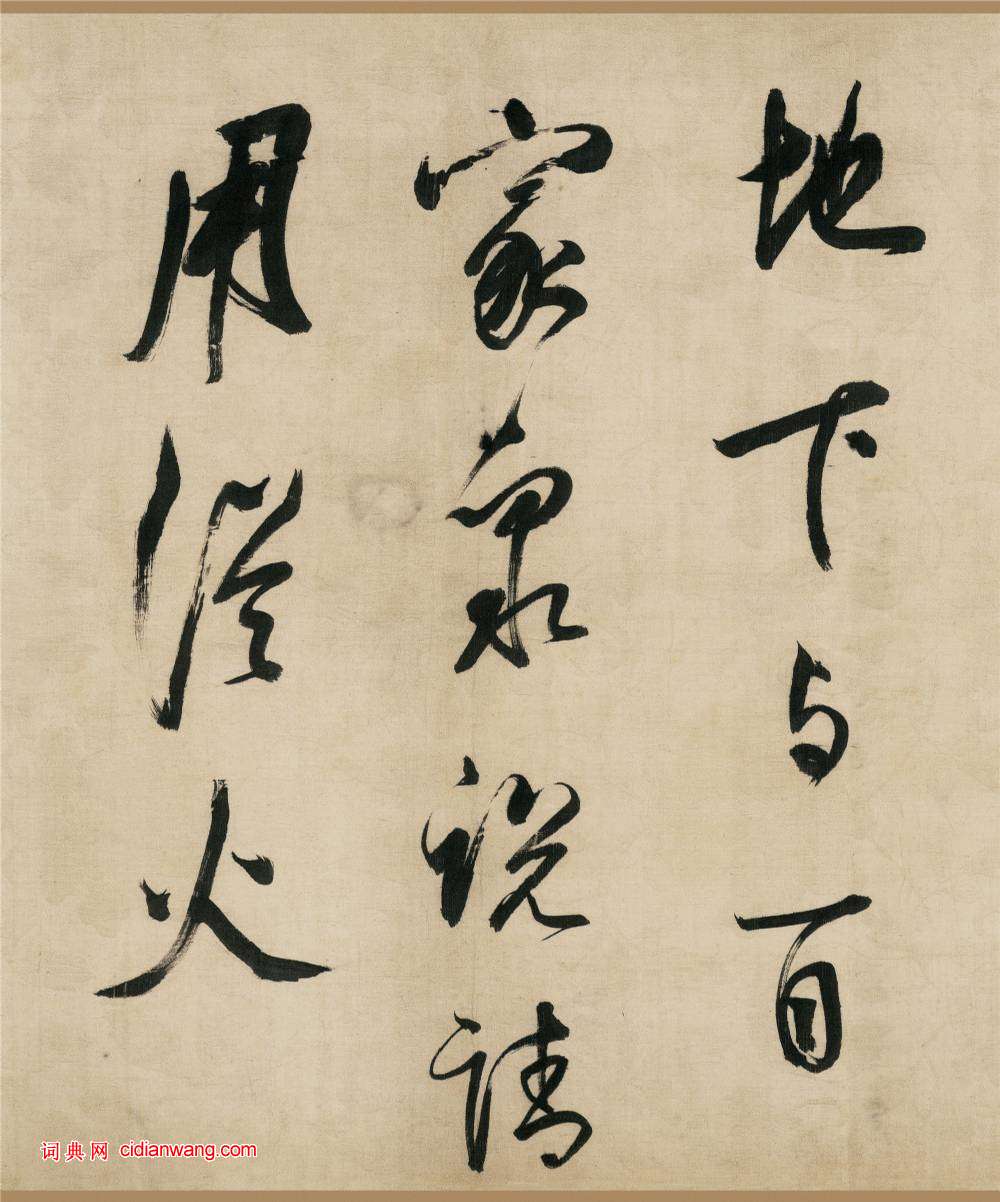 地下与百
家衆説請
用火
词典网 cidianwang.com